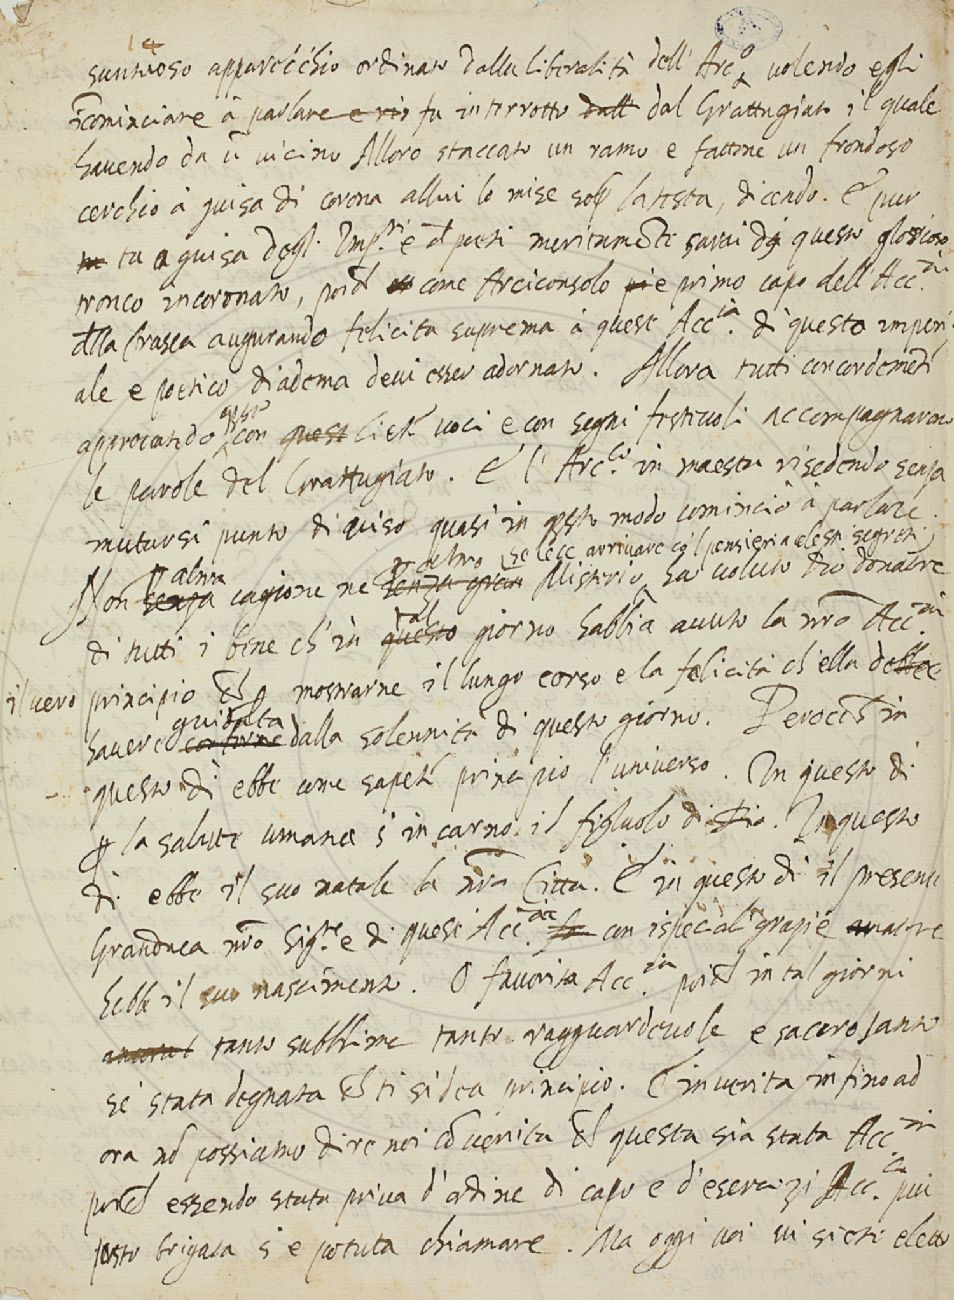 14
suntuoso apparecchio ordinato dalla liberalità dell' Arc.o volendo egli
icominciare à parlare e ris fu interrotto dall dal Grattugiato il quale
havendo da ū vicino Alloro staccato un ramo e fattone un frondoso
cerchio à guisa di corona allui lo mise sop̄ la testa, dicendo. E pur
tu a guisa degl' Imp.ri e d poeti meritamente sarai di questo glorioso
tronco incoronato, poichē come Arciconsolo e primo capo dell' Acc.ia
dlla Crusca augurando felicita suprema à quest' Acc.ia di questo imperi
ale e poetico diadema devi esser adornato. Allora tutti concordemente
approvando qsto con quest liete voci e con segni festevoli accompagnarono
le parole del Grattugiato. E l' Arc.lo in maestà risedendo senza
mutarsi punto di viso quasi in qsto modo cominciò à parlare.
se lece arrivare cō'l pensiero a celesti segreti
Non senza altra cagione ne senza gran altro Misterio ha voluto Dio donatore
di tutti i bene ch' in questo tal giorno habbia avuto la nrā Acc.ia
il vero principio chē p mostrarne il lungo corso e la felicità ch' ella debbe
havere conforme guidata dalla solennità di questo giorno. Perocchē in
questo dì ebbe come sapete principio l' universo. In questo di
p la salute umana s' incarno il figluolo di Dio. In questo
di ebbe il suo natale la nrā Città. E in questo di il presente
Granduca nrō Sig.re e di quest' Acc.ia con ispecial' grazie
hebbe il suo nascimento. O favorita Acc.ia poichē in tal giorni
tanto subblime tanto ragguardevole e sacrosanto
sè stata degnata chē ti si dea principio. E in verita infino ad
ora nō possiamo dire noi cō verità chē questa sia stata Acc.ia
poichē essendo stata priva d' ordine di capo e d' esercizi Acc.ia piu
psto brigata s' e potuta chiamare. Ma oggi voi vi siete eletto